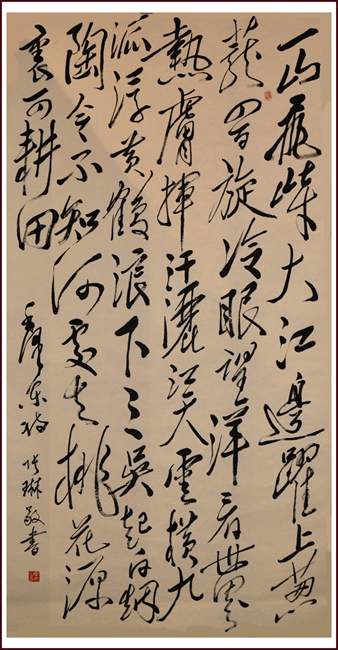 一山飛峙大江邊躍上葱
蘢四百旋冷眼望洋看世界
熱膚揮汗灑江天雲橫九
派浮黄鶴浪下三吳起白烟
陶令不知何處去桃花源
裏可耕田
琳敬書